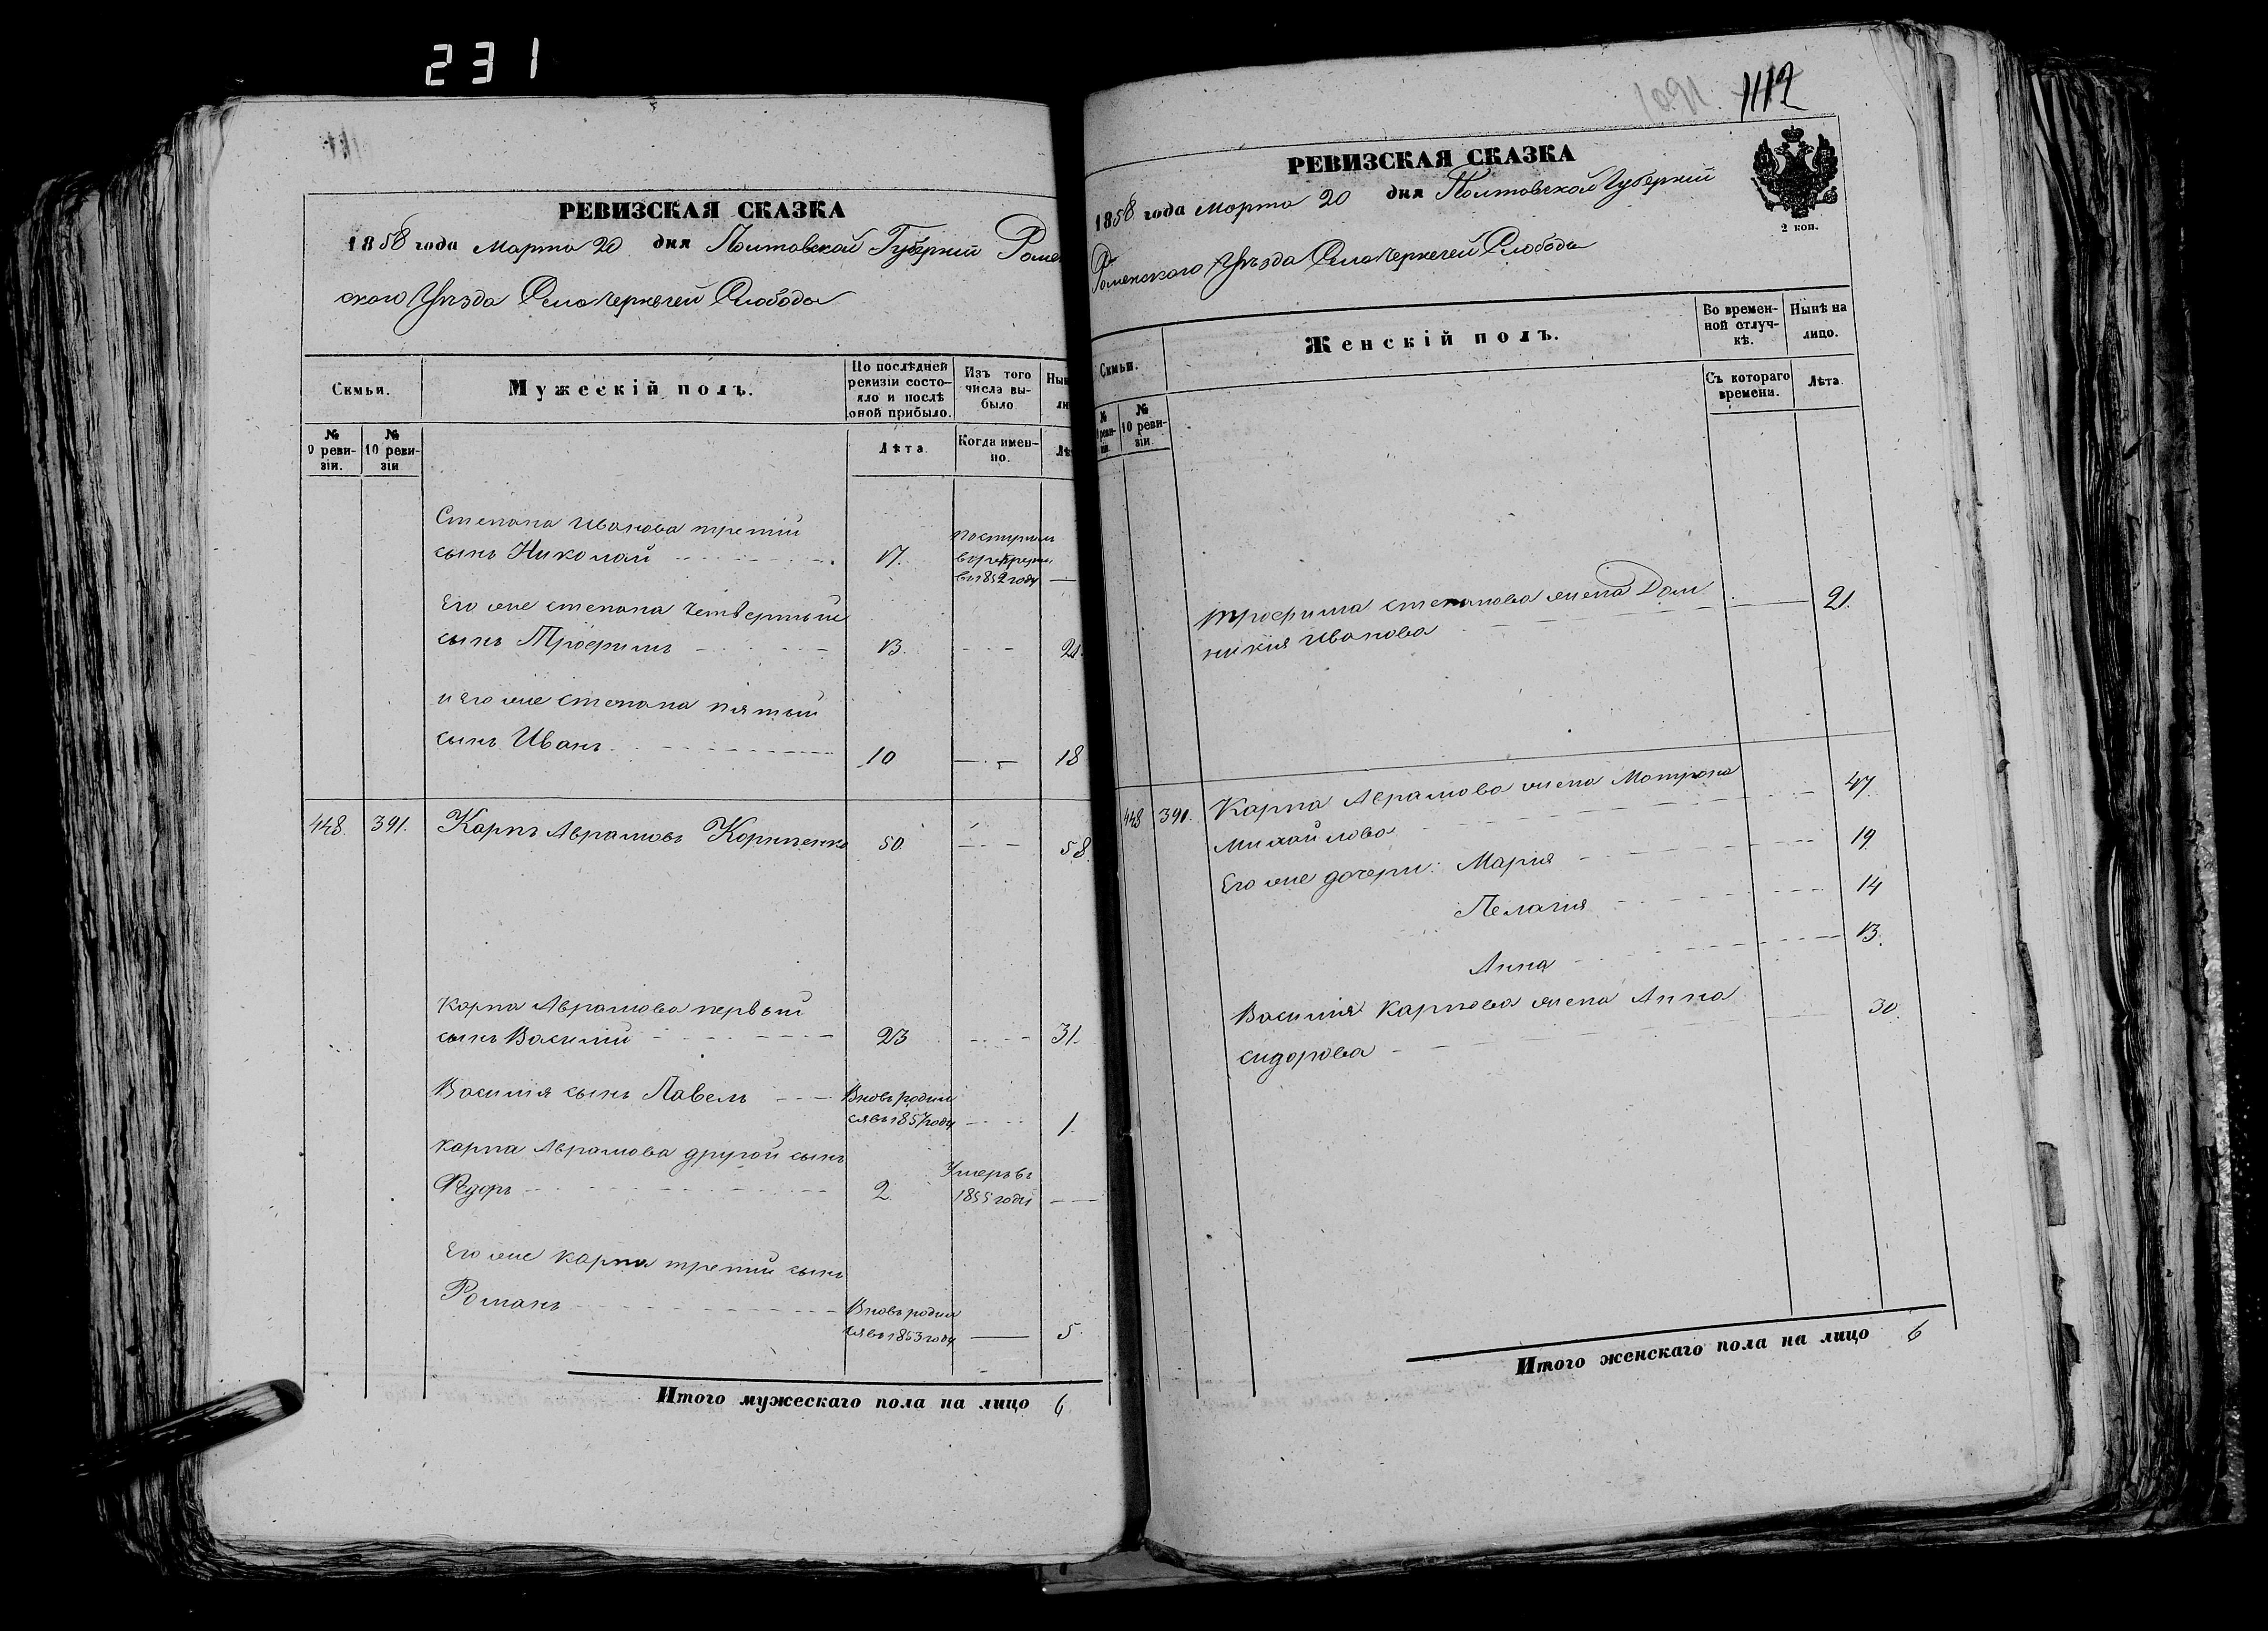 231
РЕВИЗСКАЯ СКАЗКА
1858 года Марта 20 дня Полтавской Губернии Ромен
ского Уѣзда Села Черкечей Слободы
Скмьи.
Мужескій полъ.
По послѣдней ревизіи состо-
яло и послѣ
оной прибыло.
Изъ того
числа вы-
было.
№
9 реви-
зіи.
№
10 реви-
зіи
Лѣта.
Когда имен-
но.
Степана Иванова третій
сынъ Николай 17.
поступилъ
въ рекруты
въ 1852 году
Его же степана четвертый
сынъ Трофимъ 13. 21.
и Его же степана пятый
сынъ Иванъ 10 18
448. 391. Карпъ Аврамовъ Корниенко 50. 58.
Карпа Аврамова первый
сынъ Василий 23 31.
Василия сынъ Павелъ
Вновь родил
ся въ 1857 году 1.
Карпа Аврамова другой сынъ
Фёдоръ 2.
Умеръ въ
1855 году
Его же карпа третий сынъ
Романъ
Вновь родил
ся въ 1853 году 5.
Итого мужескаго пола на лицо 6
1091. 1112
РЕВИЗСКАЯ СКАЗКА
2 коп.
1858 года Марта 20 дня Полтавской Губернии
Роменского Уѣзда Села Черкечей Слободы
Скмьи.
Женскій полъ.
Во времен-
ной отлуч-
кѣ.
Нынѣ на
лицо.
Съ котораго
времени.
Лѣта.
№
10 реви-
зіи
трофима степанова жена Дом
никия Иванова 21.
448 391. Карпа Аврамова жена Матрона
Михайлова 47.
Его же дочери: Мария 19
Пелагия 14
Анна 13.
Василия Карпова жена Анна
сидорова 30.
Итого женскаго пола на лицо 6